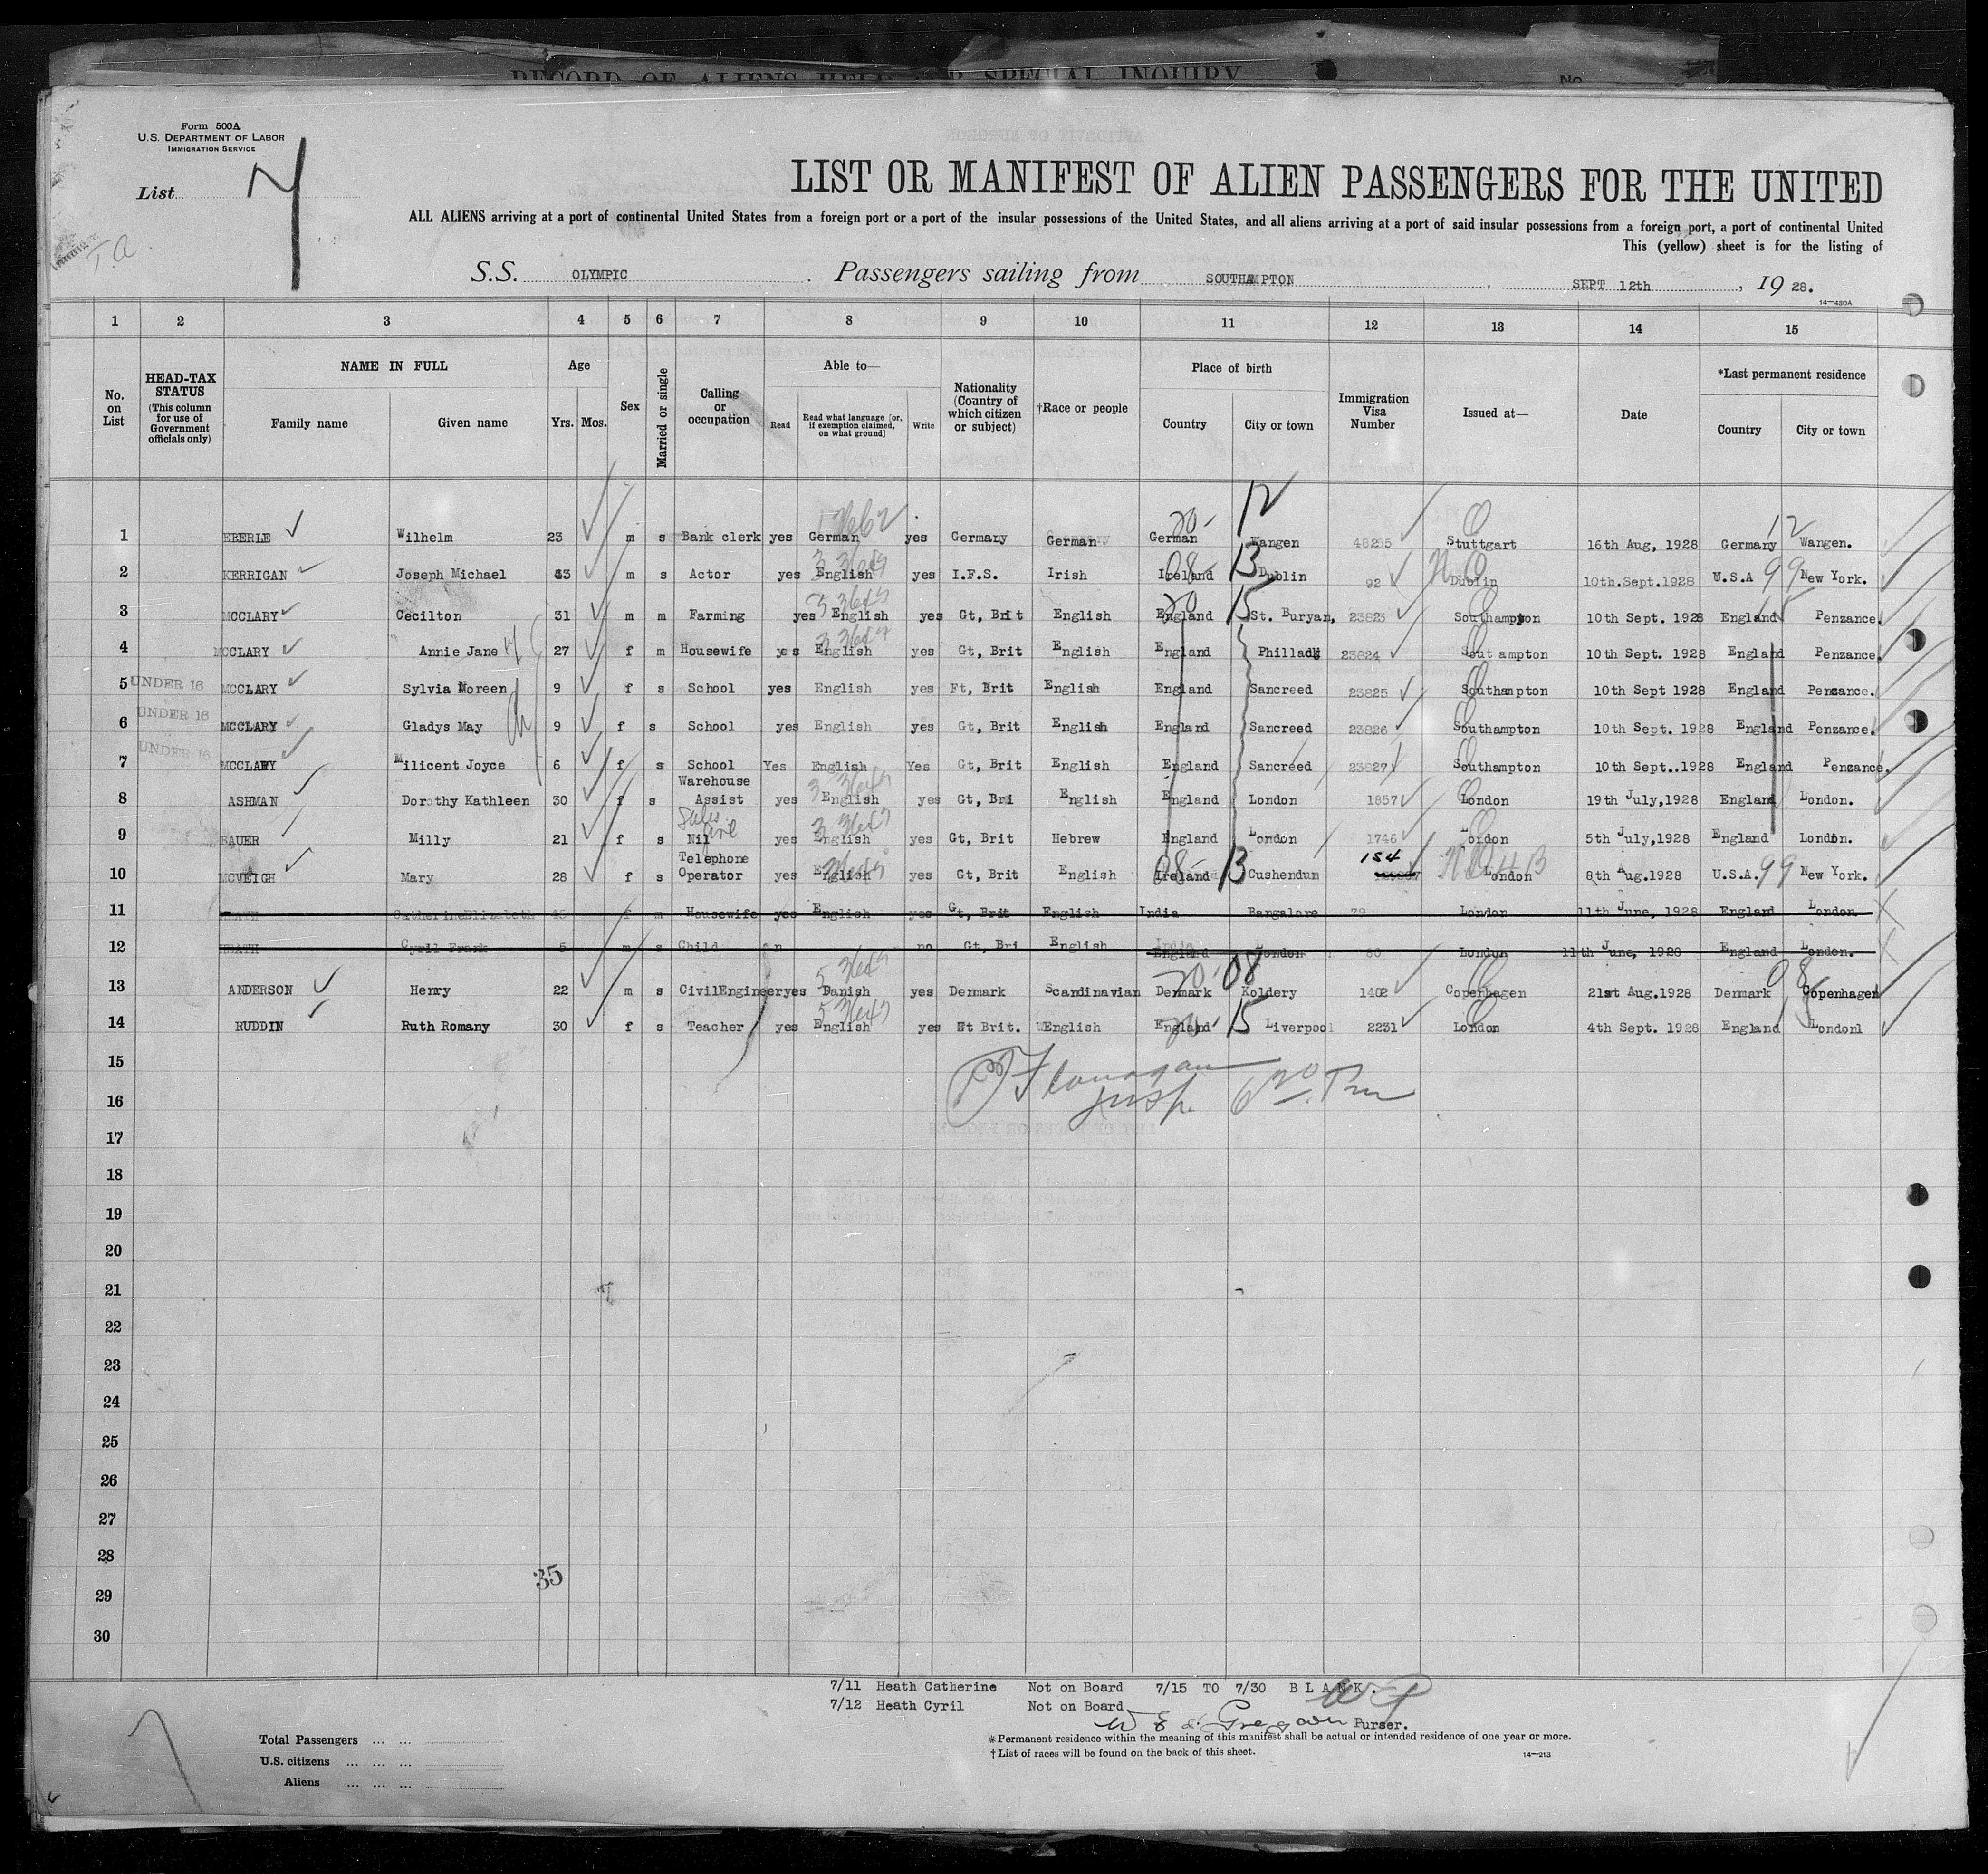 RECORD OF ALIENS HELD FOR SPECIAL INQUIRY
No
Form 500A
U.S. DEPARTMENT OF LABOR
IMMIGRATION SERVICE
List 7
T.A.
LIST OR MANIFEST OF ALIEN PASSENGERS FOR THE UNITED
ALL ALIENS arriving at a port of continental United States from a foreign port or a port of the insular possessions of the United States, and all aliens arriving at a port of said insular possessions from a foreign port, a port of continental United
This (yellow) sheet is for the listing of
S.S. OLYMPIC . Passengers sailing from SOUTHAMPTON , SEPT 12th , 19 28.
14—430A
1 2 3 4 5 6 7 8 9 10 11 12 13 14 15
No. on List
HEAD-TAX STATUS (This column for use of Government officials only)
NAME IN FULL
Family name Given name
Age
Yrs. Mos.
Sex
Married or single
Calling or occupation
Able to—
Read Read what language [or, if exemption claimed, on what ground] Write
Nationality (Country of which citizen or subject)
†Race or people
Place of birth
Country City or town
Immigration Visa Number
Issued at—
Date
*Last permanent residence
Country City or town
1 EBERLE Wilhelm 23 m s Bank clerk yes German yes Germany German German 20- 12 Wangen 48255 Stuttgart 16th Aug, 1928 Germany 12 Wangen.
2 KERRIGAN Joseph Michael 43 m s Actor yes English yes I.F.S. Irish Ireland 08- 13 Dublin 92 Dublin 10th.Sept.1928 U.S.A 99 New York.
3 MCCLARY Cecilton 31 m m Farming yes English yes Gt, Brit English England 20 15 St. Buryan, 23823 Southampton 10th Sept. 1928 England 15 Penzance.
4 MCCLARY Annie Jane 27 f m Housewife yes English yes Gt, Brit English England 23824 Southampton 10th Sept. 1928 England Penzance.
5 UNDER 16 MCCLARY Sylvia Noreen 9 f s School yes English yes Ft, Brit English England Sancreed 23825 Southampton 10th Sept 1928 England Penzance.
6 UNDER 16 MCCLARY Gladys May 9 f s School yes English yes Gt, Brit English England Sancreed 23826 Southampton 10th Sept. 1928 England Penzance.
7 UNDER 16 MCCLARY Milicent Joyce 6 f s School Yes English Yes Gt, Brit English England Sancreed 23827 Southampton 10th Sept..1928 England Penzance.
8 ASHMAN Dorothy Kathleen 30 f s Warehouse Assist yes English yes Gt, Bri English England London 1857 London 19th July,1928 England London.
9 BAUER Milly 21 f s Nil yes English yes Gt, Brit Hebrew England London 1746 London 5th July,1928 England London.
10 MCVEIGH Mary 28 f s Telephone Operator yes English yes Gt, Brit English Ireland 08- 13 Cushendun 154 London 8th Aug.1928 U.S.A. 99 New York.
11 HEATH Catherine Elizabeth 45 f m Housewife yes English yes Gt, Brit English India Bangalore 79 London 11th June, 1928 England London.
12 HEATH Cyril Frank 5 m s Child n no Gt, Bri English England London 80 London 11th June, 1928 England London.
13 ANDERSON Henry 22 m s CivilEngineer yes Danish yes Denmark Scandinavian Denmark 20- 08 Koldery 1402 Copenhagen 21st Aug.1928 Denmark 08 Copenhagen
14 RUDDIN Ruth Romany 30 f s Teacher yes English yes Brit. English England 20- 15 Liverpool 2231 London 4th Sept. 1928 England 15 London
15
Flanagan
16
Insp.
17
18
19
20
21
22
23
24
25
26
27
28
35
29
30
7/11 Heath Catherine Not on Board 7/15 TO 7/30 BLANK.
7/12 Heath Cyril Not on Board
Purser.
Total Passengers
U.S. citizens
Aliens
*Permanent residence within the meaning of this manifest shall be actual or intended residence of one year or more.
†List of races will be found on the back of this sheet.
14—213